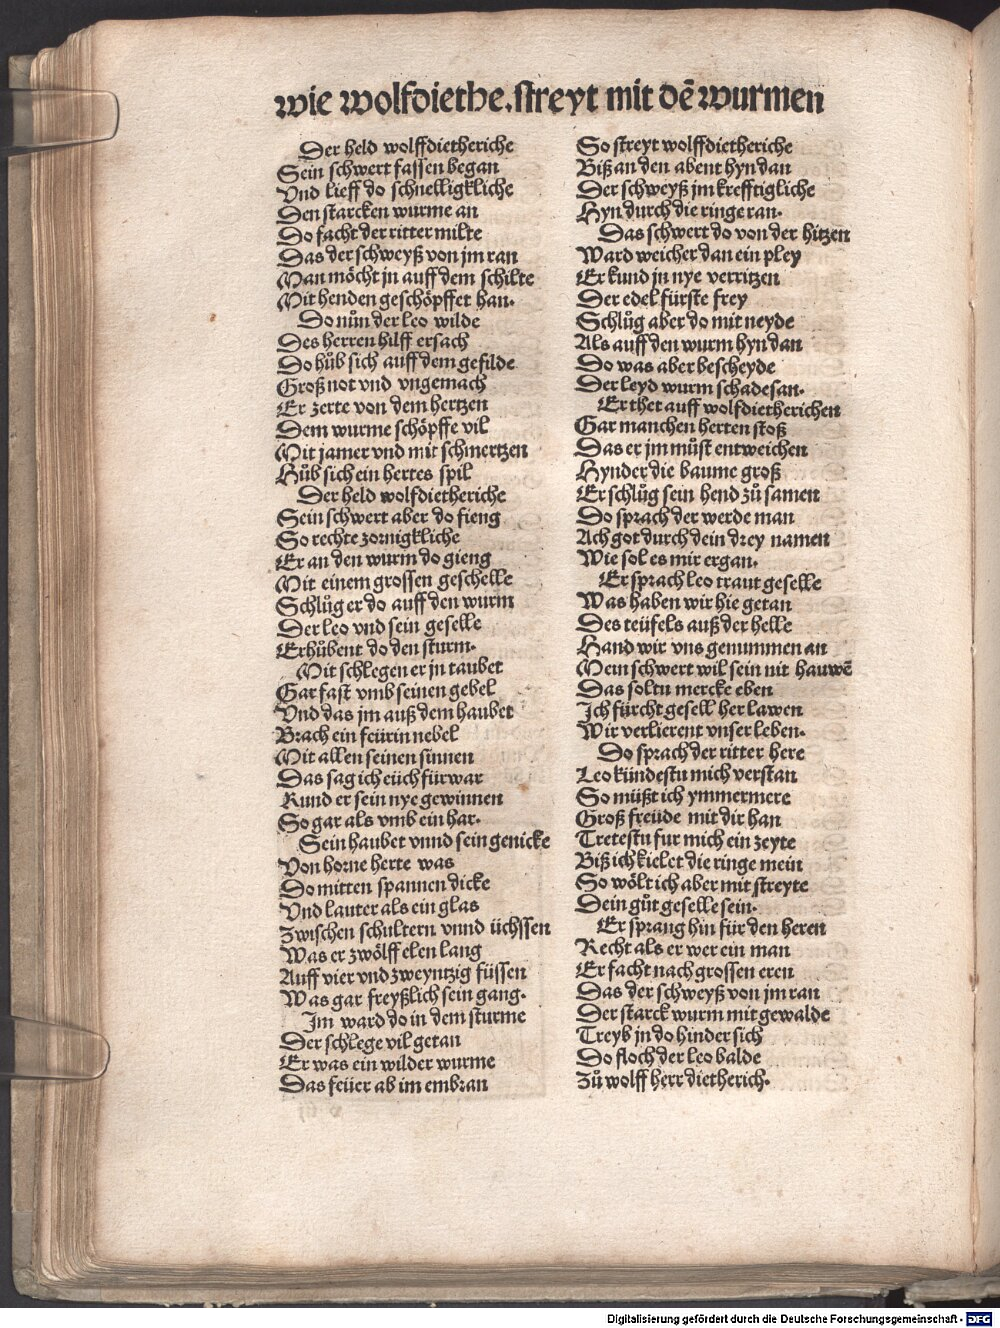 wie wolfdiethe. streyt mit dē wurmen
Der held wolffdietheriche
Sein schwert fassen began
Vnd lieff do schnelligkliche
Den starcken wurme an
Do facht der ritter milte
Das der schweyß von jm ran
Man möcht jn auff dem schilte
Mit henden geschöpffet han.
Do nůn der leo wilde
Des herren hilff ersach
Do hůb sich auff dem gefilde
Groß not vnd vngemach
Er zerte von dem hertzen
Dem wurme schöpffe vil
Mit jamer vnd mit schmertzen
Hůb sich ein hertes spil
Der held wolfdietheriche
Sein schwert aber do fieng
So rechte zornigkliche
Er an den wurm do gieng
Mit einem grossen geschelle
Schlůg er do auff den wurm
Der leo vnd sein geselle
Erhůbent do den sturm.
Mit schlegen er jn taubet
Gar fast vmb seinen gebel
Vnd das jm auß dem haubet
Brach ein feürin nebel
Mit allen seinen sinnen
Das sag ich eüch fürwar
Kund er sein nye gewinnen
So gar als vmb ein har.
Sein haubet vnnd sein genicke
Von horne herte was
Do mitten spannen dicke
Vnd lauter als ein glas
Zwischen schultern vnnd üchssen
Was er zwölff elen lang
Auff vier vnd zweyntzig füssen
Was gar freyßlich sein gang.
Im ward do in dem sturme
Der schlege vil getan
Er was ein wilder wurme
Das feüer ab im embran
So streyt wolffdietheriche
Biß an den abent hyn dan
Der schweyß jm krefftigliche
Hyn durch die ringe ran.
Das schwert do von der hitzen
Ward weicher dan ein pley
Er kund jn nye verritzen
Der edel fürste frey
Schlůg aber do mit neyde
Als auff den wurm hyn dan
Do was aber bescheyde
Der leyd wurm schadesan.
Er thet auff wolfdietherichen
Gar manchen herten stoß
Das er jm můst entweichen
Hynder die baume groß
Er schlůg sein hend zů samen
Do sprach der werde man
Ach got durch dein drey namen
Wie sol es mir ergan.
Er sprach leo traut geselle
Was haben wir hie getan
Des teüfels auß der helle
Hand wir vns genummen an
Mein schwert wil sein nit hauwē
Das soltu mercke eben
Ich fürcht gesell her lawen
Wir verlierent vnser leben.
Do sprach der ritter here
Leo kündestu mich verstan
So müßt ich ymmermere
Groß freüde mit dir han
Tretestu fur mich ein zeyte
Biß ich kielet die ringe mein
So wölt ich aber mit streyte
Dein gůt geselle sein.
Er sprang hin für den heren
Recht als er wer ein man
Er facht nach grossen eren
Das der schweyß von jm ran
Der starck wurm mit gewalde
Treyb jn do hinder sich
Do floch der leo balde
Zů wolff herr dietherich.
Digitalisierung gefördert durch die Deutsche Forschungsgemeinschaft - DFG